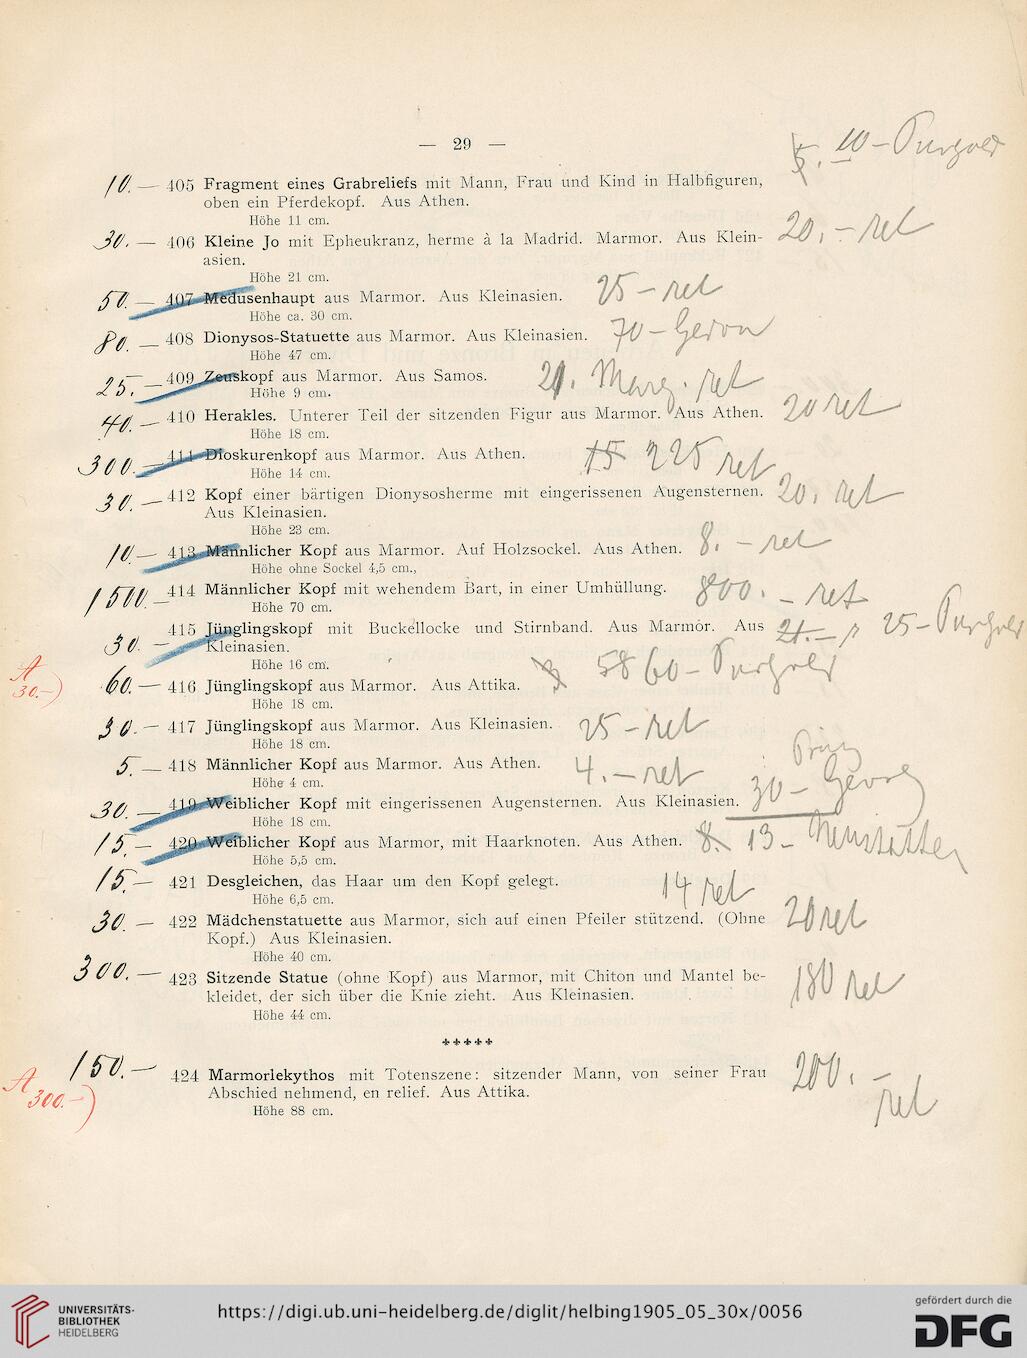 — 29 —
5. — 10 — Purgold
10. — 405 Fragment eines Grabreliefs mit Mann, Frau und Kind in Halbfiguren,
oben ein Pferdekopf. Aus Athen.
Höhe 11 cm.
30. — 406 Kleine Jo mit Epheukranz, herme à la Madrid. Marmor. Aus Klein- 20. — ret
asien.
Höhe 21 cm.
50. — 407 Medusenhaupt aus Marmor. Aus Kleinasien. 25 — ret
Höhe ca. 30 cm.
80. — 408 Dionysos-Statuette aus Marmor. Aus Kleinasien. 70 —
Höhe 47 cm.
25. — 409 Zeuskopf aus Marmor. Aus Samos. ret
Höhe 9 cm.
40. — 410 Herakles. Unterer Teil der sitzenden Figur aus Marmor. Aus Athen. 20 ret
Höhe 18 cm.
300. — 411 Dioskurenkopf aus Marmor. Aus Athen. 15 225 ret
Höhe 14 cm.
30. — 412 Kopf einer bärtigen Dionysosherme mit eingerissenen Augensternen. 20. ret
Aus Kleinasien.
Höhe 23 cm.
10 — 413 Männlicher Kopf aus Marmor. Auf Holzsockel. Aus Athen. 8. — ret
Höhe ohne Sockel 4,5 cm.,
1500. — 414 Männlicher Kopf mit wehendem Bart, in einer Umhüllung. 800. — ret
Höhe 70 cm.
30. — 415 Jünglingskopf mit Buckellocke und Stirnband. Aus Marmor. Aus 21. — 25 — Purgold
Kleinasien.
Höhe 16 cm.
A 30.—)
60. — 416 Jünglingskopf aus Marmor. Aus Attika. 58 60 — Purgold
Höhe 18 cm.
30. — 417 Jünglingskopf aus Marmor. Aus Kleinasien. 25 — ret
Höhe 18 cm.
5. — 418 Männlicher Kopf aus Marmor. Aus Athen. 4. — ret
Höhe 4 cm.
Prinz
30. — 419 Weiblicher Kopf mit eingerissenen Augensternen. Aus Kleinasien. 30 — Georg
Höhe 18 cm.
15. — 420 Weiblicher Kopf aus Marmor, mit Haarknoten. Aus Athen. 8. 13 — Neustätter
Höhe 5,5 cm.
15. — 421 Desgleichen, das Haar um den Kopf gelegt. 14 ret
Höhe 6,5 cm.
30 — 422 Mädchenstatuette aus Marmor, sich auf einen Pfeiler stützend. (Ohne 20 ret
Kopf.) Aus Kleinasien.
Höhe 40 cm.
300. — 423 Sitzende Statue (ohne Kopf) aus Marmor, mit Chiton und Mantel be- 180 ret
kleidet, der sich über die Knie zieht. Aus Kleinasien.
Höhe 44 cm.
150. — 424 Marmorlekythos mit Totenszene: sitzender Mann, von seiner Frau 200. —
A 300.—) Abschied nehmend, en relief. Aus Attika. ret
Höhe 88 cm.
UNIVERSITÄTS-
BIBLIOTHEK
HEIDELBERG
https://digi.ub.uni-heidelberg.de/diglit/helbing1905_05_30x/0056
gefördert durch die
DFG